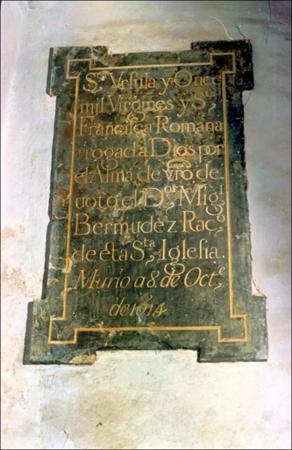 S.ta Vrsula y Once
mil Virgines y S.ta
Francisca Romana
rogad á Dios por
el Alma de vro de
uoto el D.or Mig.l
Bermudez Rac.o
de esta S.ta Iglesia.
Murio a 8. de Oct.e
de